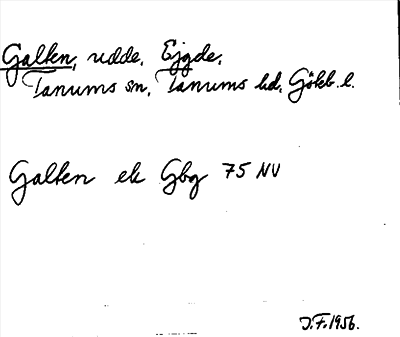 Galten, udde, Ejgde,
Tanums sn, Tanums hd, Götb. l.
Galten ek Gbg 75 NV
J.F. 1956.